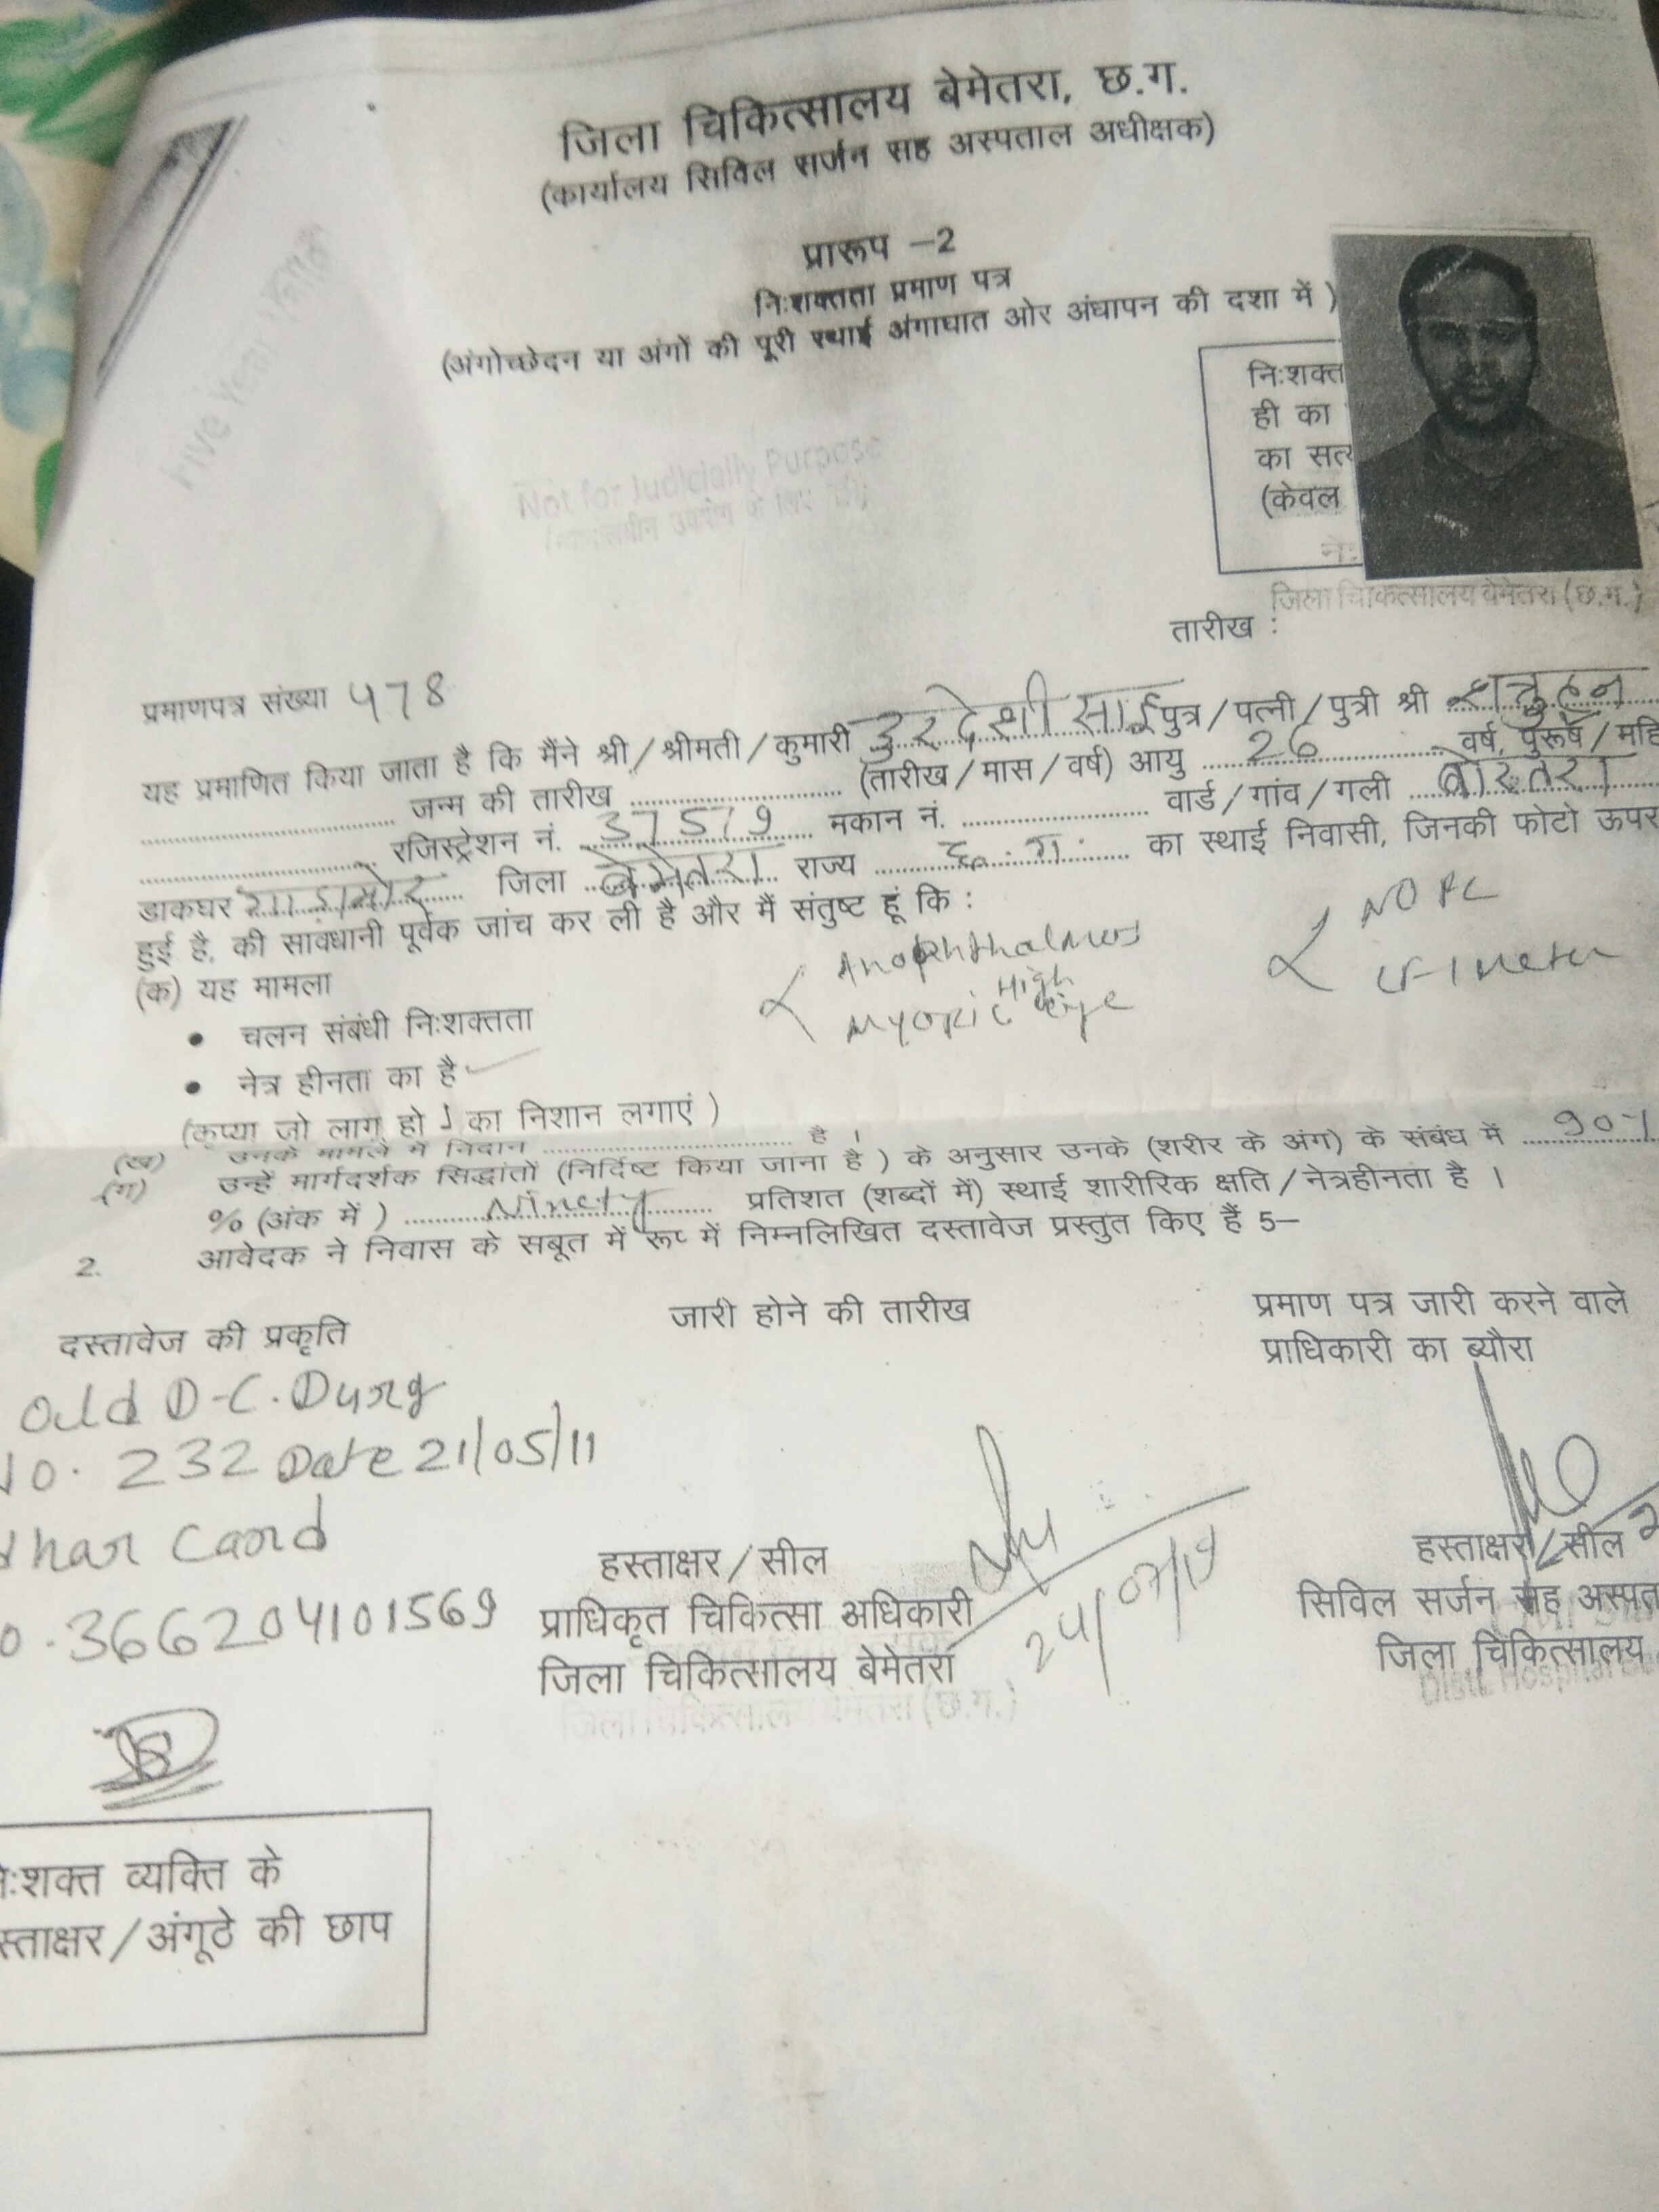 जिला चिकित्सालय बेमेतरा, छ.ग.
(कार्यालय सिविल सर्जन सह अस्पताल अधीक्षक)
प्रारूप –2
निःशक्तता प्रमाण पत्र
(अंगोच्छेदन या अंगों की पूरी स्थाई अंगाघात ओर अंधापन की दशा में )
Five Year
Not for Judicially Purpose
निःशक्त
ही का
का सत्
(केवल
जिला चिकित्सालय बेमेतरा (छ.ग.)
तारीख :
प्रमाणपत्र संख्या 478
यह प्रमाणित किया जाता है कि मैंने श्री/श्रीमती/कुमारी उरदेशी साई पुत्र/पत्नी/पुत्री श्री शत्रुहन
जन्म की तारीख (तारीख/मास/वर्ष) आयु 26 वर्ष, पुरूष/महि
रजिस्ट्रेशन नं. 37579 मकान नं. वार्ड/गांव/गली बोरतरा
डाकघर जिला बेमेतरा राज्य छ.ग. का स्थाई निवासी, जिनकी फोटो ऊपर
हुई है, की सावधानी पूर्वक जांच कर ली है और मैं संतुष्ट हूं कि :
(क) यह मामला
Anophthalmos
High
Myopic eye
NO PL
• चलन संबंधी निःशक्तता
• नेत्र हीनता का है
(कृप्या जो लागू हो का निशान लगाएं )
(ख) उनके मामले में निदान है ।
(ग) उन्हें मार्गदर्शक सिद्धांतों (निर्दिष्ट किया जाना है ) के अनुसार उनके (शरीर के अंग) के संबंध में 90%
% (अंक में ) Ninety प्रतिशत (शब्दों में) स्थाई शारीरिक क्षति/नेत्रहीनता है ।
2. आवेदक ने निवास के सबूत में रूप में निम्नलिखित दस्तावेज प्रस्तुत किए हैं 5–
दस्तावेज की प्रकृति जारी होने की तारीख प्रमाण पत्र जारी करने वाले
प्राधिकारी का ब्यौरा
Old D-C. Durg
No. 232 Date 21/05/11
dhar Card
o. 366204101569
हस्ताक्षर/सील
प्राधिकृत चिकित्सा अधिकारी
जिला चिकित्सालय बेमेतरा
24/07/19
जिला चिकित्सालय बेमेतरा (छ.ग.)
हस्ताक्षर/सील
सिविल सर्जन सह अस्पत
जिला चिकित्सालय
Distt. Hospital
निःशक्त व्यक्ति के
स्ताक्षर/अंगूठे की छाप